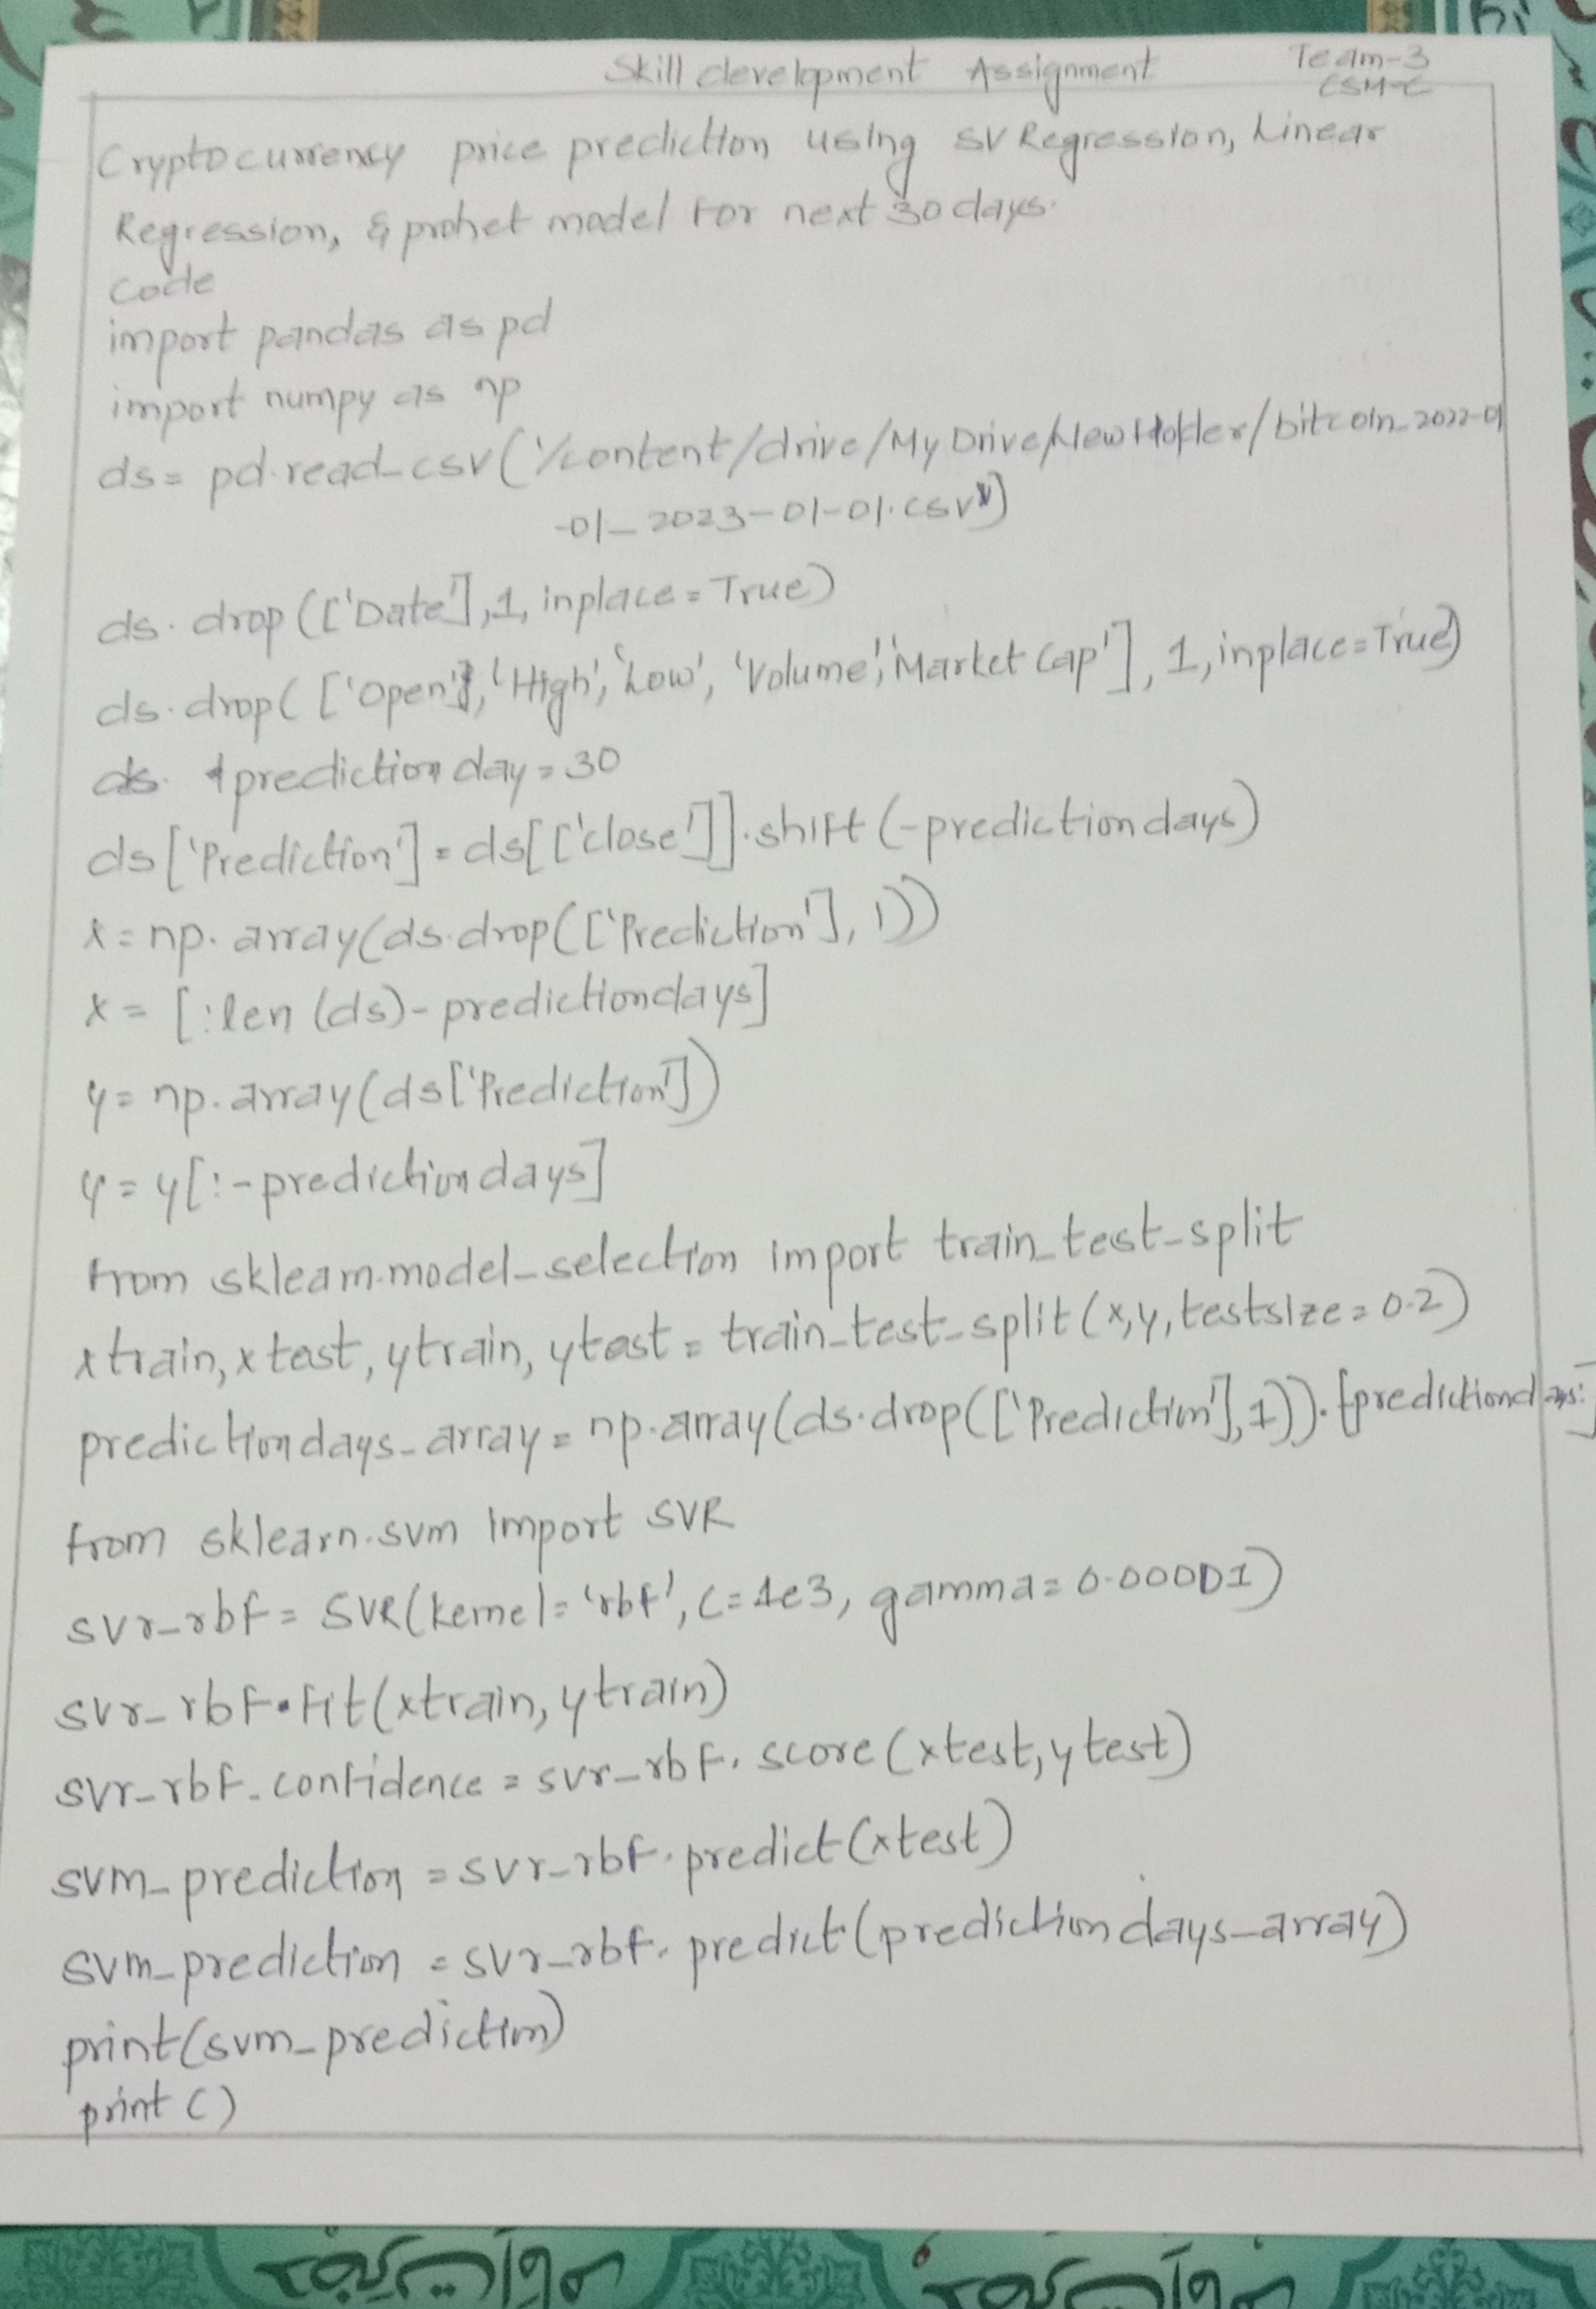 Skill development Assignment
Team-3
CSM-C
Cryptocurrency price prediction using SV Regression, Linear
Regression, & prohet model for next 30 days.
Code
import pandas as pd
import numpy as np
ds = pd.read_csv('/content/drive/My Drive/New Holder/bitcoin_2022-01
-01_2023-01-01.csv')
ds.drop(['Date'],1, inplace=True)
ds.drop(['Open','High','Low','Volume','Market Cap'],1,inplace=True)
predictionday=30
ds['Prediction']=ds[['close']].shift(-predictiondays)
x=np.array(ds.drop(['Prediction'],1))
x=[:len(ds)-predictiondays]
y=np.array(ds['Prediction'])
y=y[:-predictiondays]
from sklearn.model_selection import train_test_split
xtrain,xtest,ytrain,ytest=train_test_split(x,y,testsize=0.2)
predictiondays_array=np.array(ds.drop(['Prediction'],1)).[predictiondays:]
from sklearn.svm import SVR
svr_rbf=SVR(kernel='rbf',C=1e3,gamma=0.00001)
svr_rbf.fit(xtrain,ytrain)
svr_rbf_confidence=svr_rbf.score(xtest,ytest)
svm_prediction=svr_rbf.predict(xtest)
svm_prediction=svr_rbf.predict(predictiondays_array)
print(svm_prediction)
print()